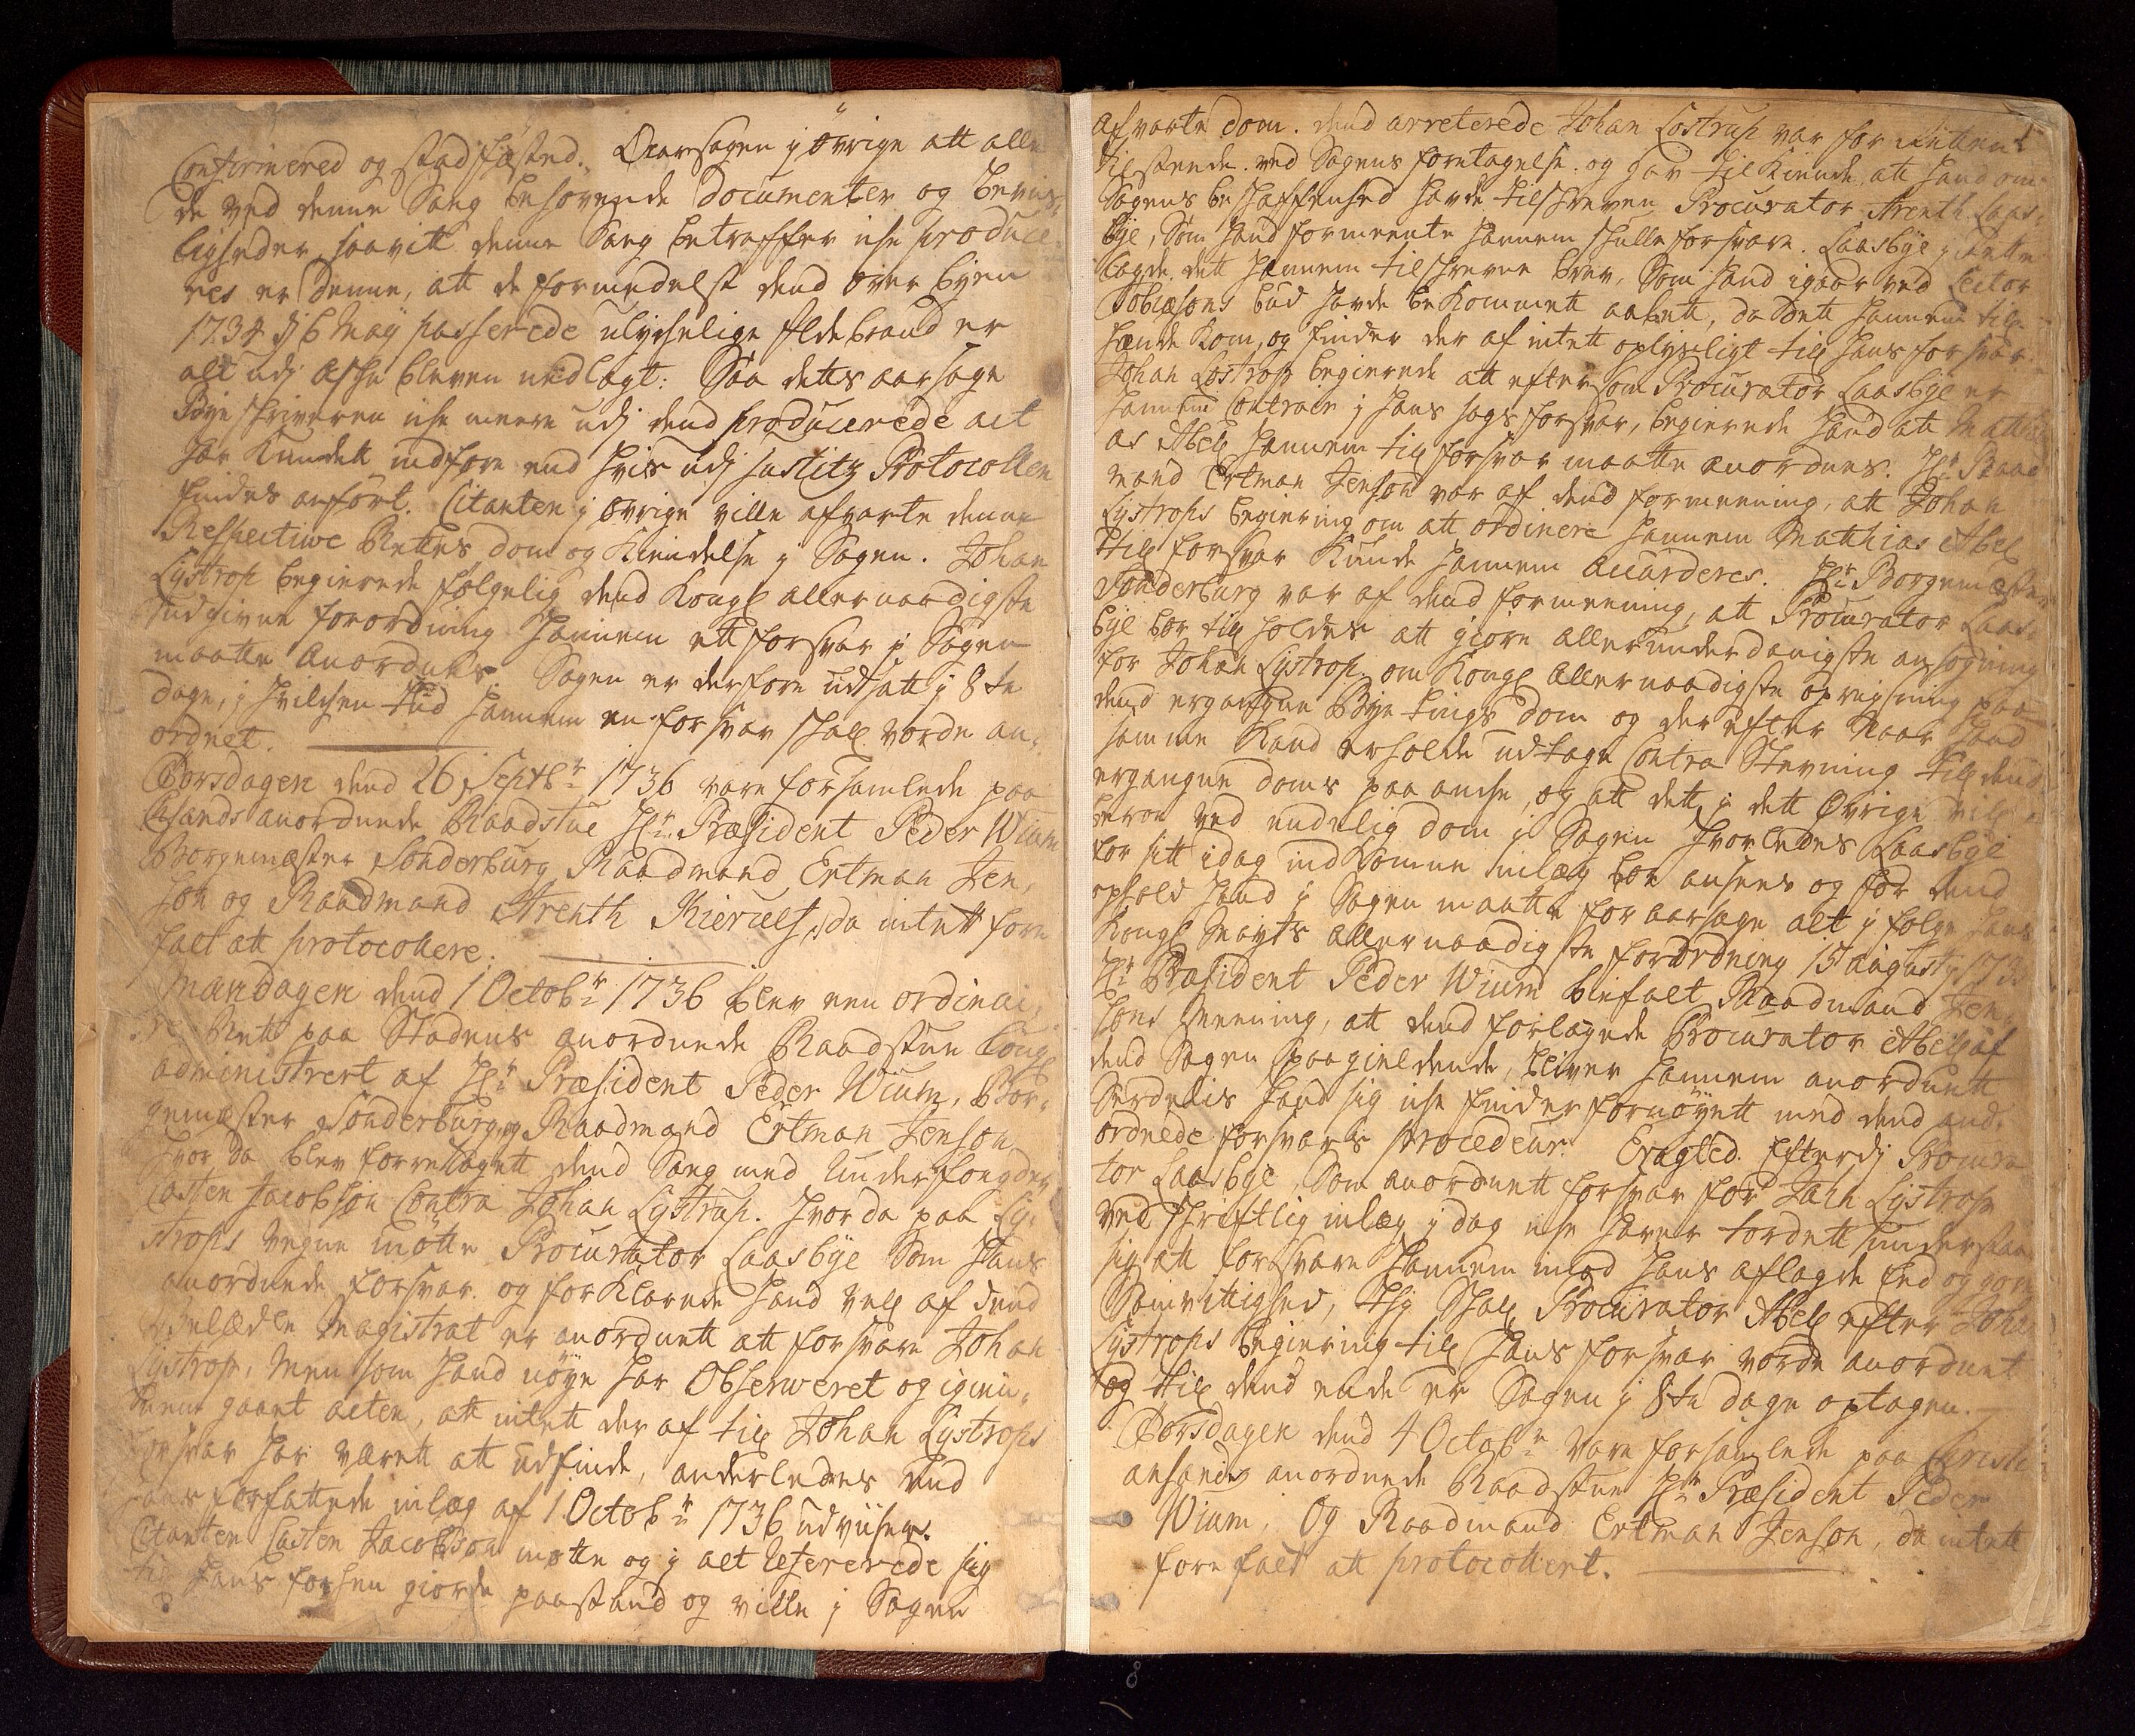 Confirmered og stadfæsted. Aarsagen j øvrige att alle
de ved denne Sag behørende Documenter og beviis-
ligheder, saavitt denne Sag betreffer iche produce-
res er denne, att de formedelst dend over byen
1734 dj 6 Maÿ passerede ulychelige Ildebrand er
alt udj Asche bleven nedlagt: Saa dettes aarsage
Bÿeskriveren iche meere udj dend producerede act
har Kundett indføre end hvis udj Justitz Protocollen
findes anført. Citanten j øvrige ville afvarte denne
Respective Rettes dom og Kiendelse j Sagen. Johan
Lÿstrop begierede følgelig dend Kongl allernaadigste
udgivne forordning hannem ett forsvar j Sagen
maatte anordnes. Sagen er derfore udsatt j 8te
dage, j hvilchen tiid hannem en forsvar skall vorde an-
ordnet.
Torsdagen dend 26 Septbr 1736 vare forsamlede paa
anordnede Raadstue Hr Præsident Peder Wium
Borgemæster Sønderburg Raadmand Ertman Jen-
søn og Raadmand Arenth Kierulf, da intett fore
falt att protocollere.
Mandagen dend 1 Octobr 1736 blev een ordinai-
re Rett paa Stadens anordnede Raadstue
administrert af Hr Præsident Peder Wium, Bor-
gemæster Sønderburg, og Raadmand Ertman Jensøn
hvor da blev forretagett dend Sag med Underfougden
Casten Jacobsøn Contra Johan Lÿstrup. hvor da paa Lÿ-
strops vegne møtte Procurator Laasbÿe som hans
anordnede forsvar. og forklarede hand vell af dend
Magistrat er anordnett att forsvare Johan
Lÿstrop, Men som hand nøÿe har Observeret og igien-
nem gaaet acten, att intett der af till Johan Lÿstrops
forsvar har værett att udfinde, anderledes end
hans forfattede inlæg af 1 Octobr 1736 udviiser.
Citanten Casten Jacobsøn møtte og j alt refererede sig
till hans forhen giorde paastand og ville j Sagen
afvarte dom. dend arreterede Johan Lostrup var for Retten
tilstæde ved Sagens foretagelse. og gav tilkiende, att hand om
Sagens beskaffenhed havde tilskreven Procurator Arenth Laas-
bÿe, som hand formeente hannem skulle forsvare. Laasbÿe j Rette
lagde dett hannem tilskrevne brev, som hand igaar ved Lector
Tobiæsens bud havde bekommett aabett, da dett hannem till
hænde Kom, og finder der af intett oplÿseligt till hans forsvar.
Johan Lostrop begierede att efter som Procurator Laasbÿe er
hannem Contrair j hans sags forsvar, begierede hand att Matthi-
as Abell hannem till forsvar maatte anordnes. Hr Raad
mand Ertman Jensøn var af dend formeening, att Johan
Lÿstrops begiering om att ordinere hannem Mathias Abell
till forsvar Kunde hannem accorderes. Hr Borgemæster
Sønderburg var af dend formeening, att Procurator Laas-
bÿe bør till holdes att giøre allerunderdanigste ansøgning
for Johan Lÿstrop om Kongl allernaadigste opreisning paa
dend ergangne Bÿe tings dom og der efter Naar hand
samme Kand erholde udtage Contra Stevning till dend
ergangne doms paa anche, og att dett j dett Øvrige vill
beroe ved endelig dom j Sagen hvorledes Laasbÿe
for sitt idag indkomne inlæg bør ansees og for dend
ophold hand j Sagen maatte foraarsage alt j følge hans
Kongl Maÿts allernaadigste forordning 15 augustj
Hr Præsident Peder Wium biefalt Raadmand Jen-
søns Meening, att dend forlagede Procurator Abell af
dend Sagen paagieldende, bliver hannem anordnett
Serdelis hand sig iche finder fornøÿett med dend an-
ordnede forsvars procedeur. Eragted. Efterdj Procura
tor Laasbÿe, som anordnett forsvar for Johan Lÿstrop
ved skriftlig inlæg j dag iche haver tordett understaae
sig att forsvare hannem imod hans aflagde Eed og gode
Samvittighed, thj skall Procurator Abell efter Joha
Lÿstrops begiering till hans forsvar vorde anordnet
og till dend ende er Sagen j 8te dage optagen.
Torsdagen dend 4 Octobr vare forsamlede paa Christi
ansands anordnede Raadstue Hr Præsident Peder
Wium, Og Raadmand Ertman Jensøn, da intett
forefalt att protocollert.